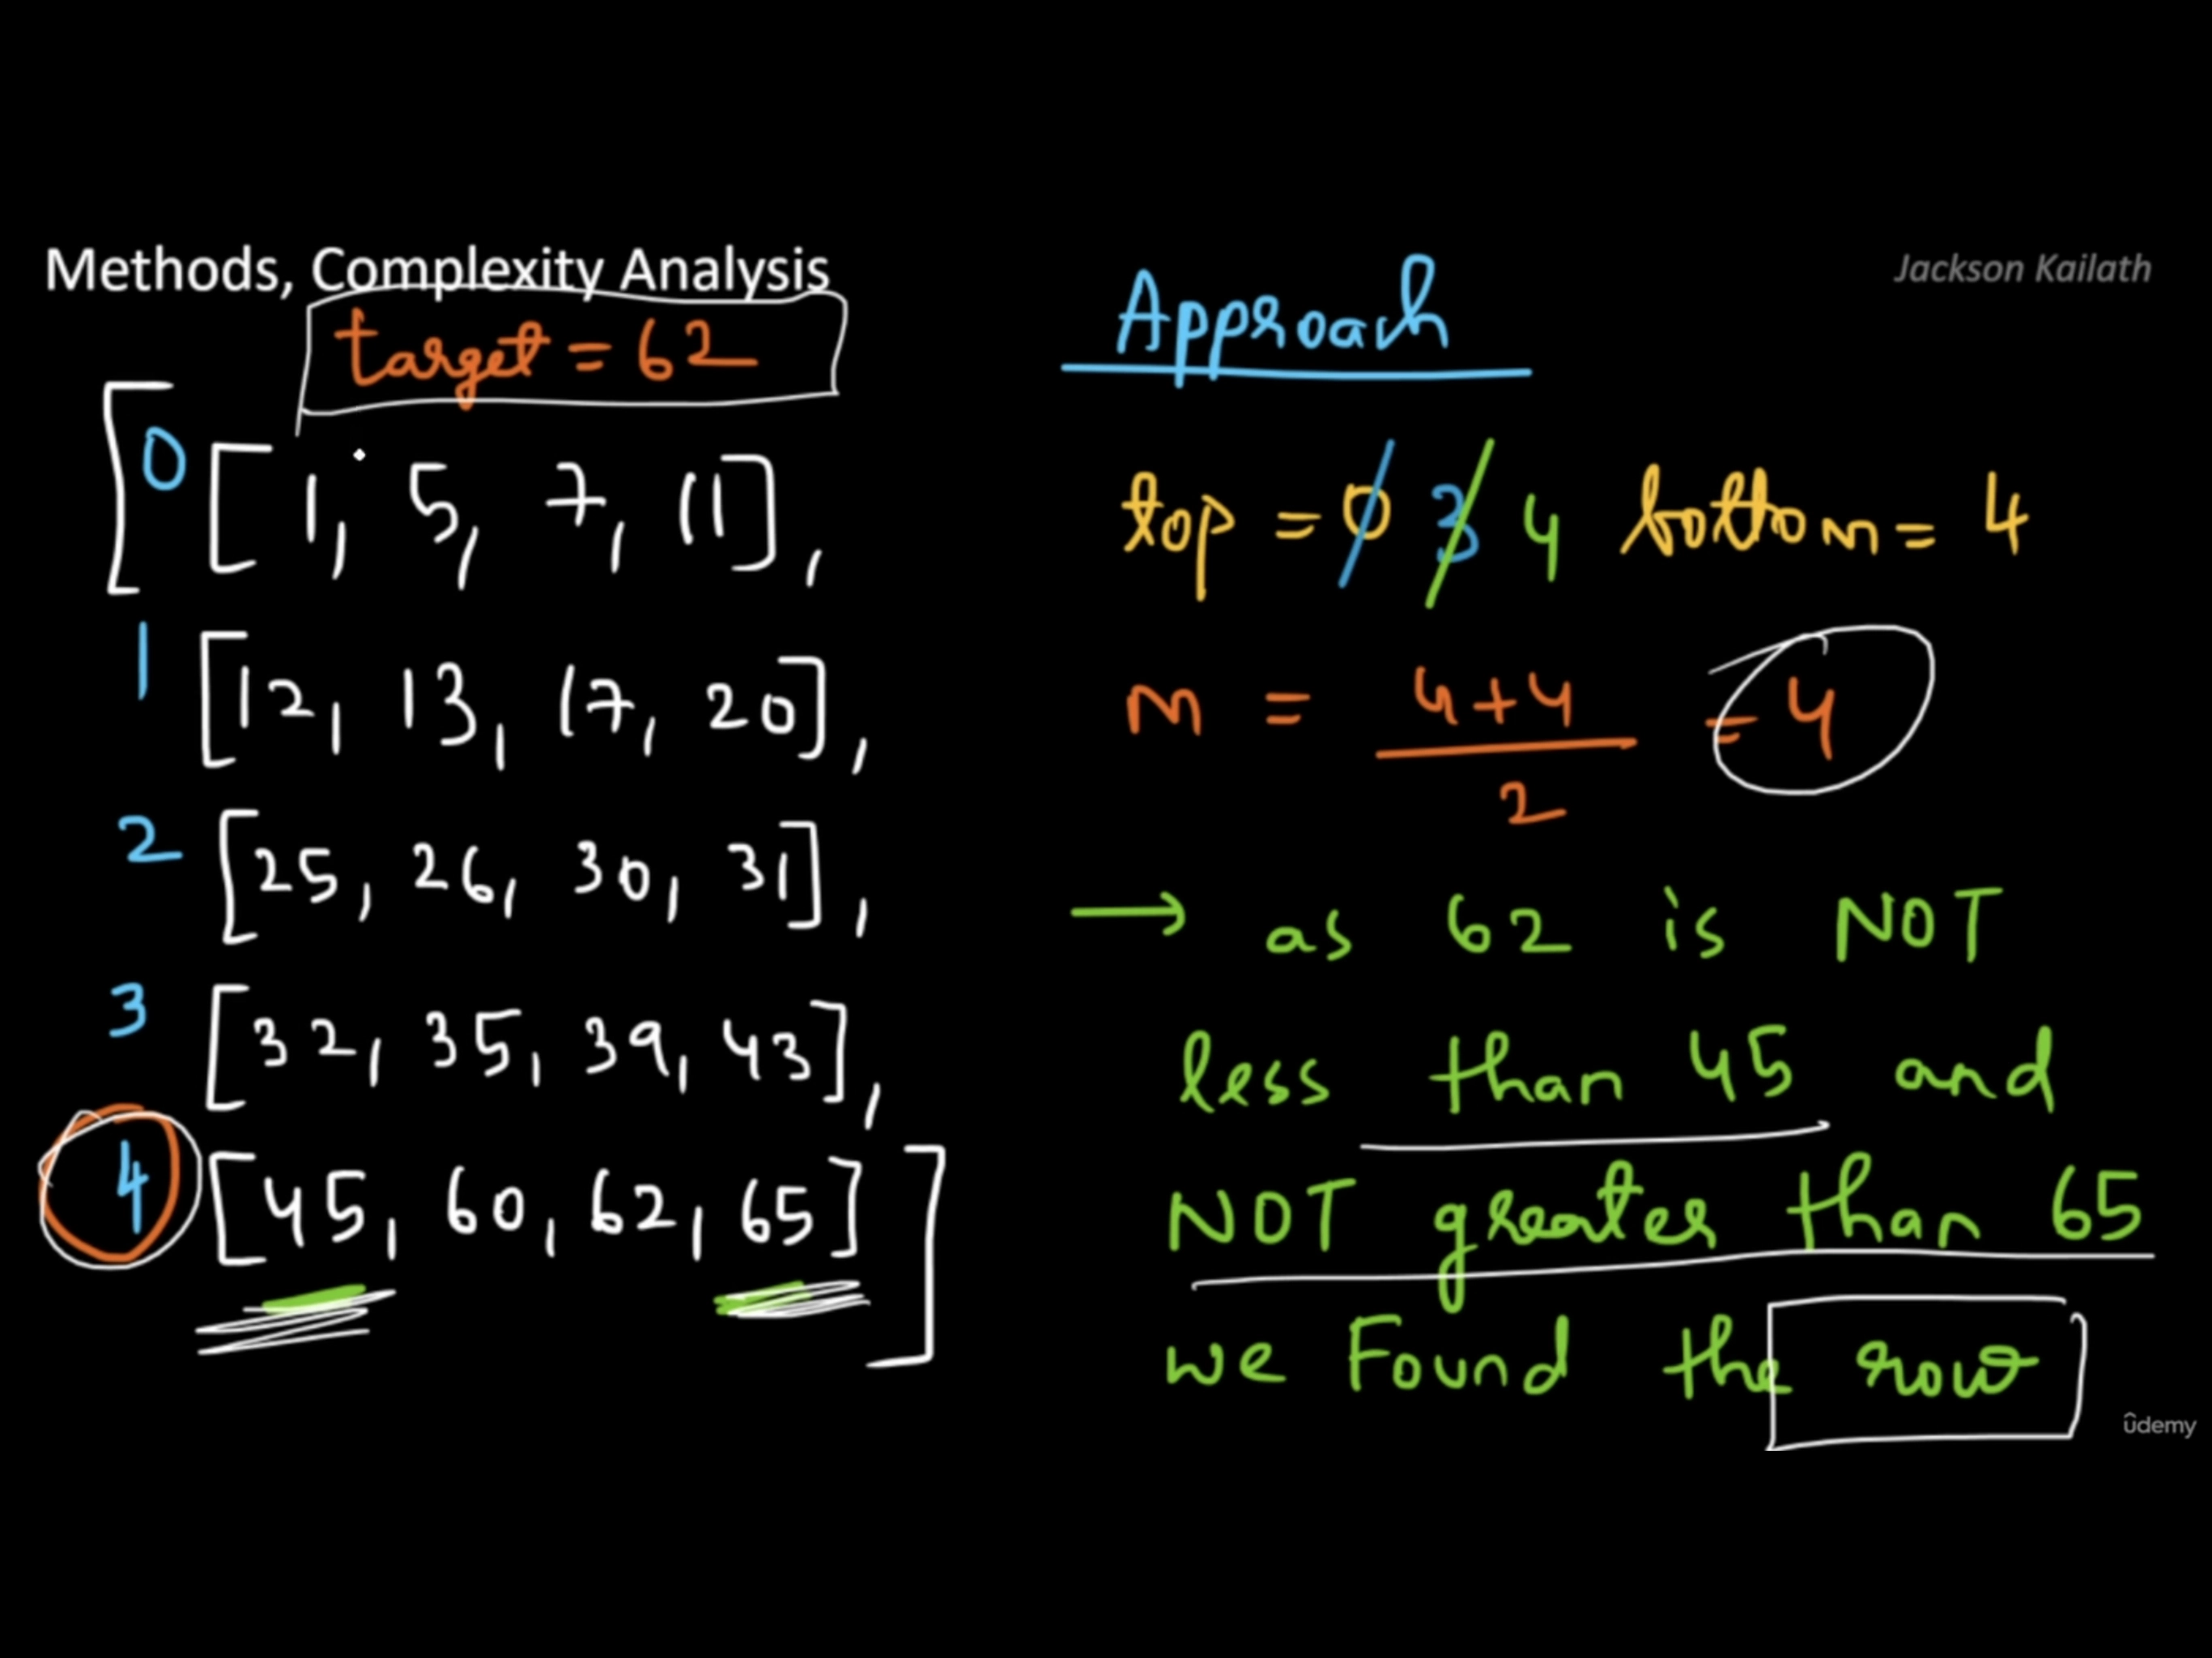 Methods, Complexity Analysis
target = 62
[
0 [1, 5, 7, 11],
1 [12, 13, 17, 20],
2 [25, 26, 30, 31],
3 [32, 35, 39, 43],
4 [45, 60, 62, 65]
]
Jackson Kailath
Approach
top = 0 3 4 bottom = 4
m = 4+4 = 4
2
→ as 62 is NOT
less than 45 and
NOT greater than 65
we Found the row
ûdemy